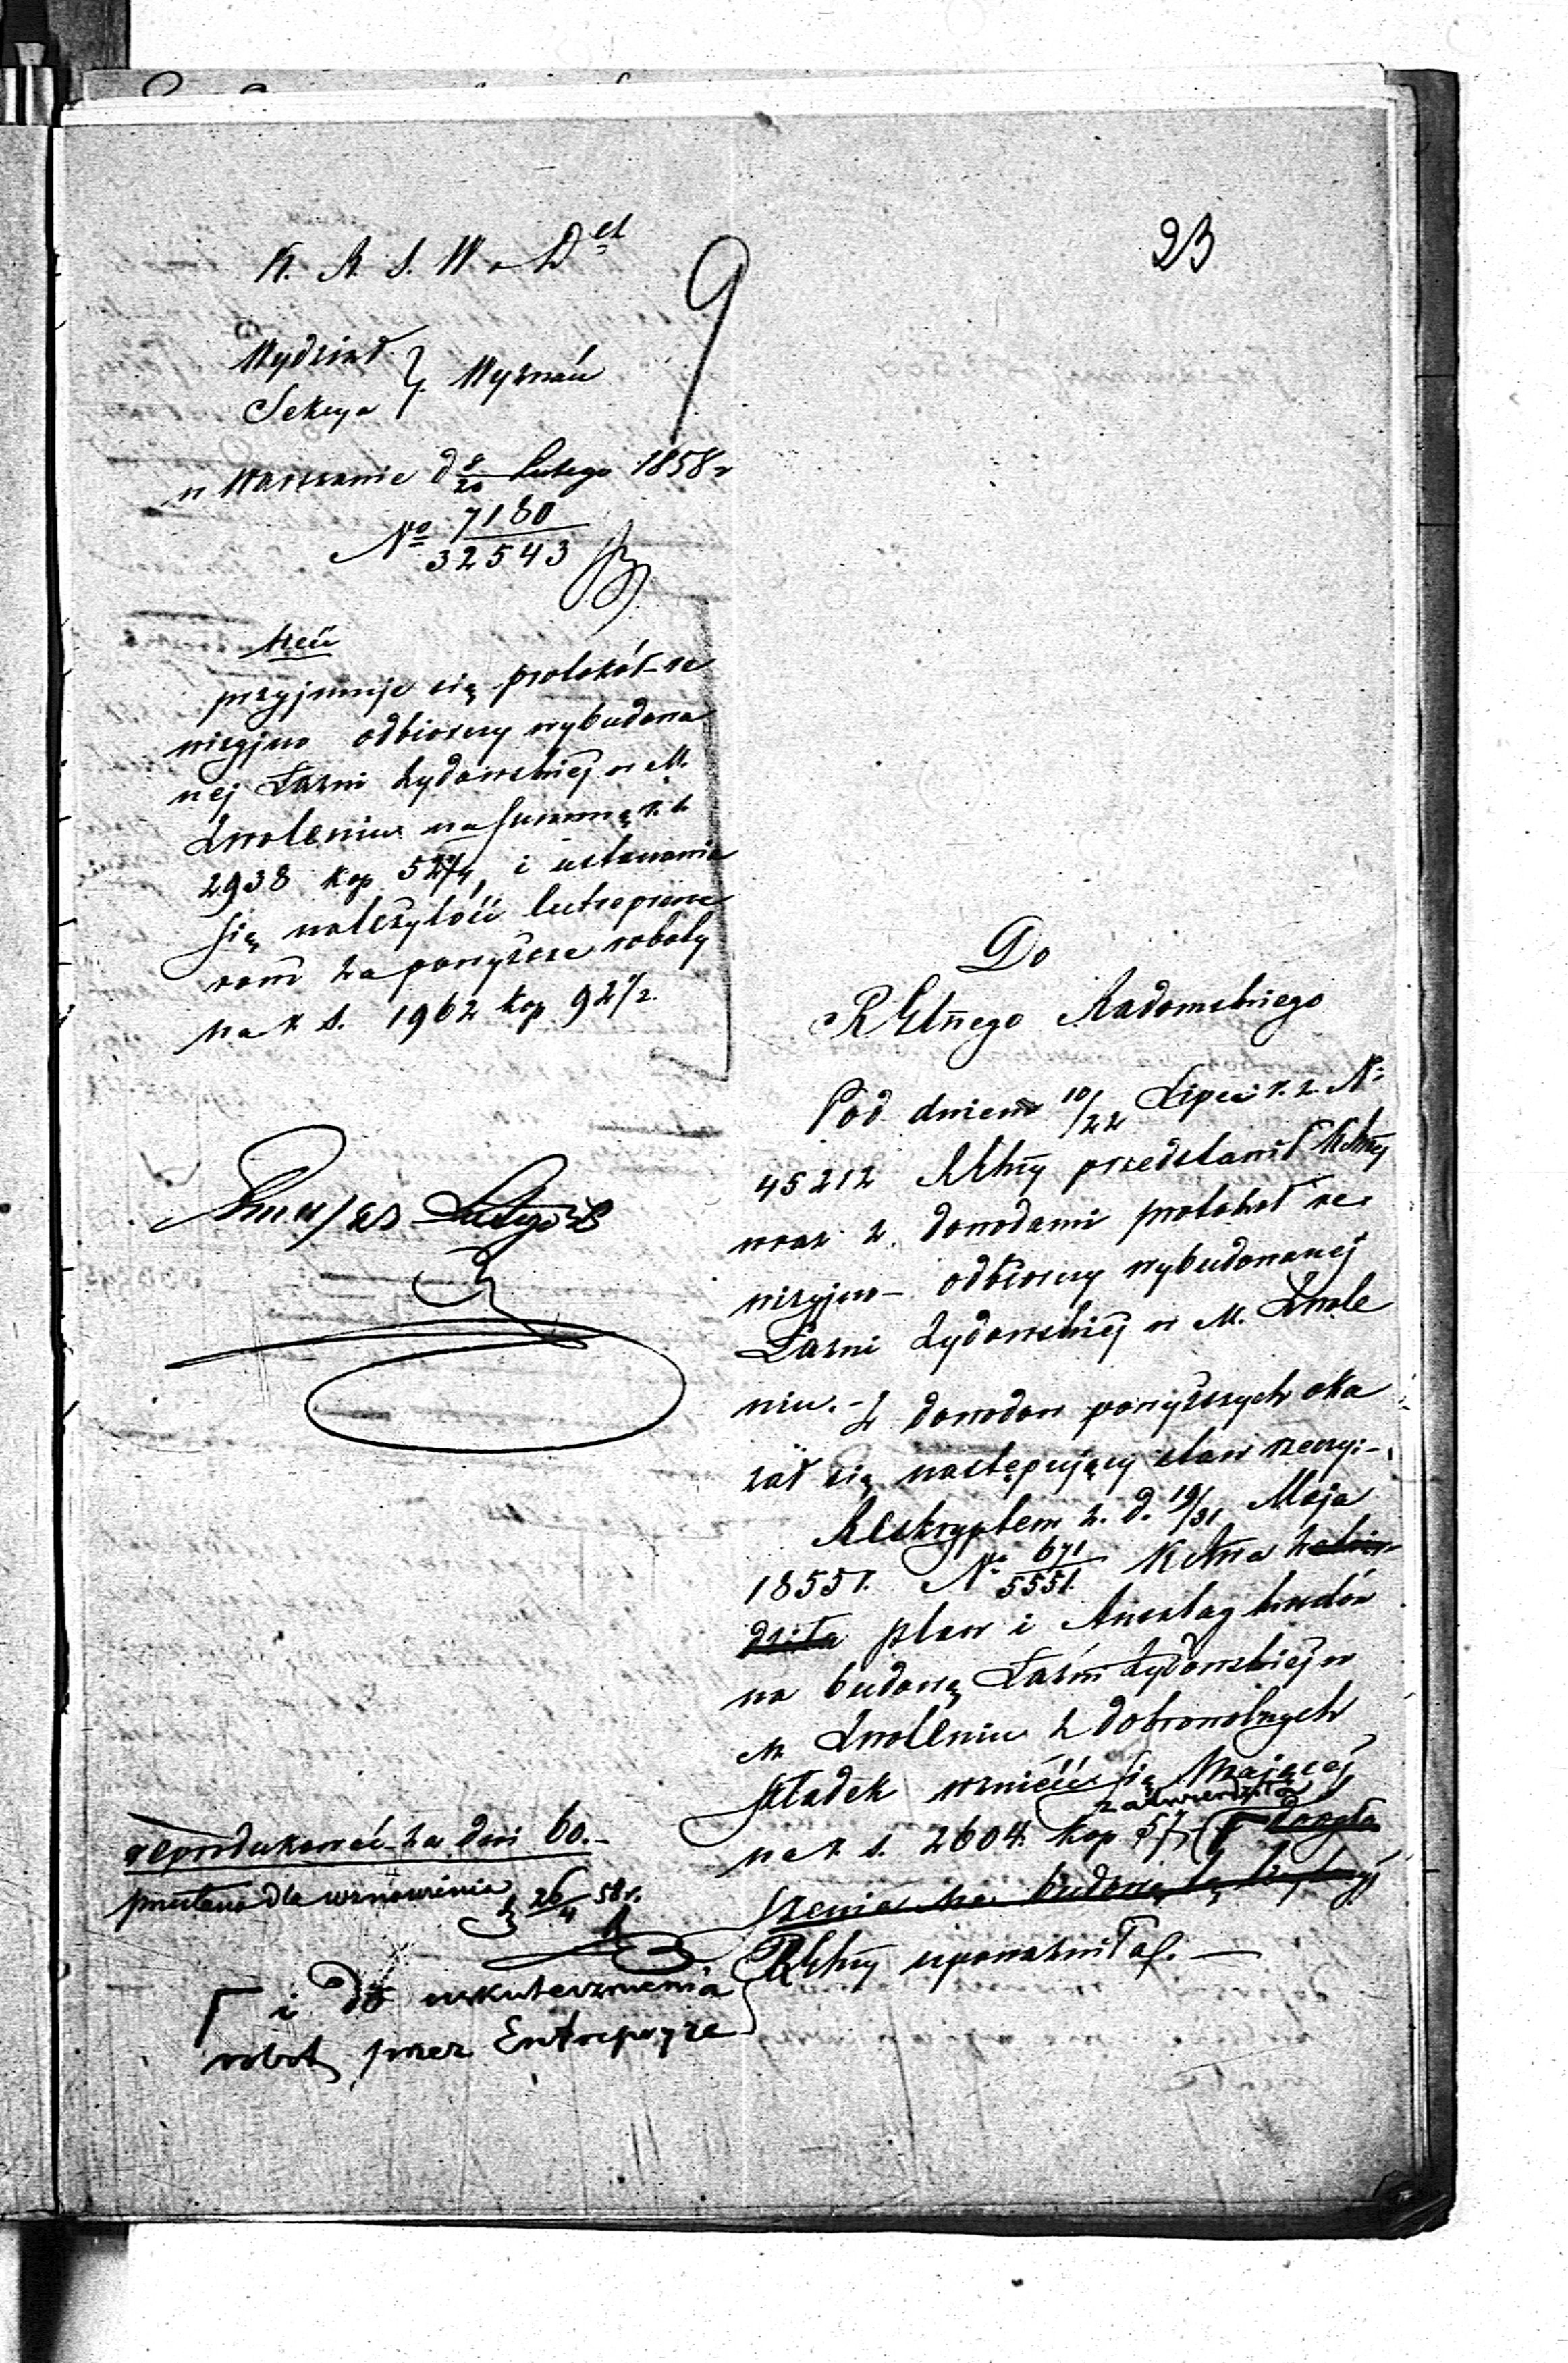 23
9
K. R. S. W. i D. et
Wydział
Sekcya } Wyznań
w Warszawie d 8/20 Lutego 1858 r
No 7180/32543
treść
przyjmuje się protokół re
wizyjno odbiorczy wybudowa
nej Łazni żydowskiej w M.
Zwoleniu na summę r. s.
2938 kop 52 3/4, i ustanawia
się należytość Entreprene
rowi za powyższe roboty
na r s. 1962 kop 92 1/2.
Lutego
reprodukować za dni 60.-
26/4 58 r.
i do uskutecznienia
robot przez Entrepryze
Do
R Gtn̄ego Radomskiego
Pod dniem 10/22 Lipca r. z. No
45212 R Gtny przedstawił
wraz z dowodami protokół re-
wizyjno- odbiorczy wybudowanej
Łazni żydowskiej w M. Zwole
niu.- Z dowodów powyższych oka
zał się następujący stan rzeczy:-
Reskryptem z. d. 19/31 Maja
1855 r. No 671/5551. zatwier-
dziła plan i Anszlag kosztów
na budowę Łazni żydowskiej w
M Zwoleniu z dobrowolnych
składek wznieść się mającej
zatwierdziła
na r s. 2604 kop 57
na budowę tę
R Gtny upoważniła.-